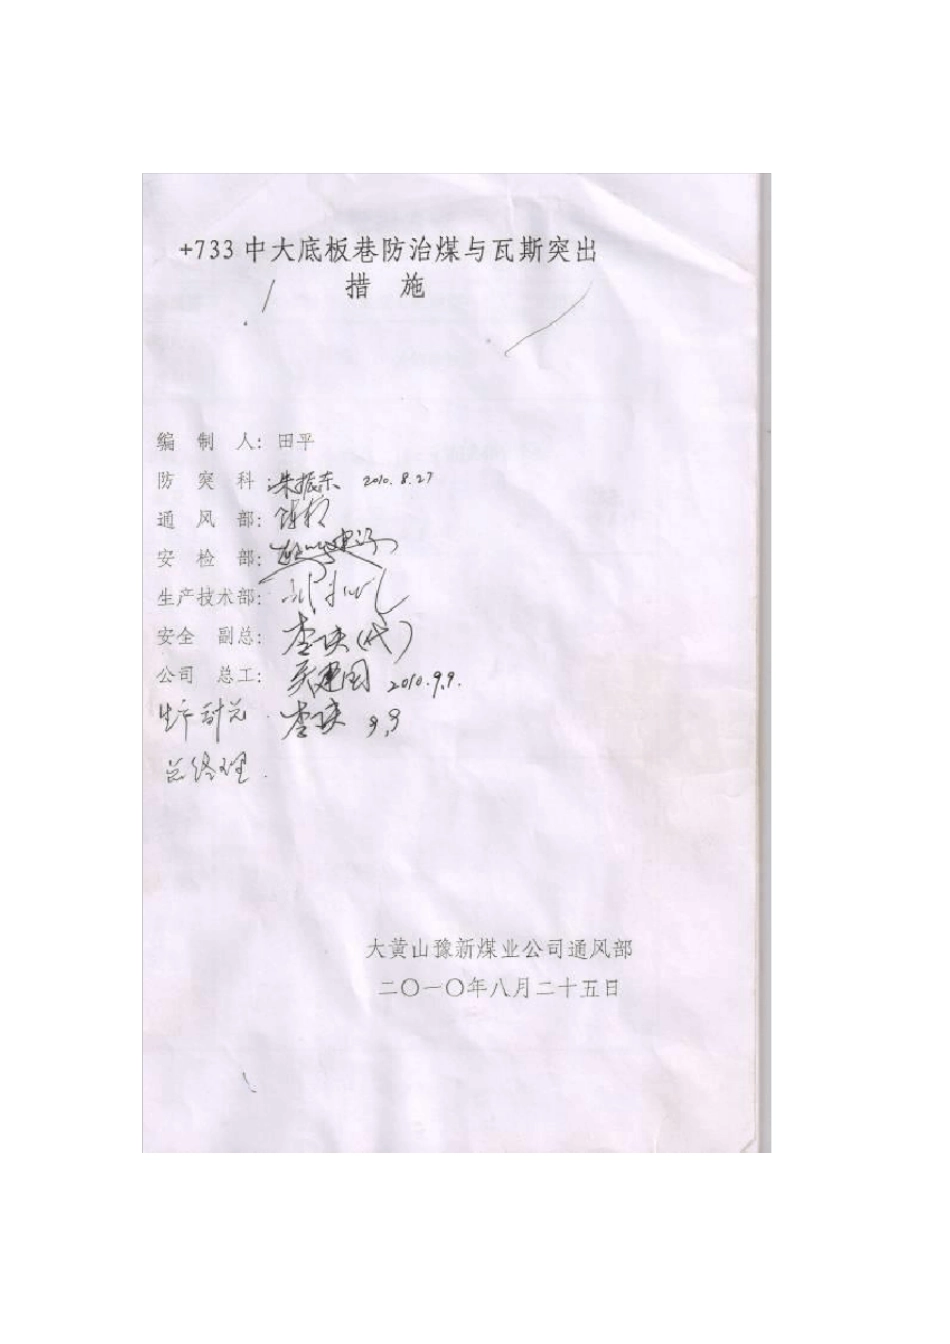 +733中大底板巷防治煤与瓦斯突出
措 施
编 制 人：田平
防 突 科：朱振东 2010.8.27
通 风 部：
安 检 部：
生产技术部：
安全 副总：李侠（代）
公司 总工：吴建国 2010.9.9.
生产副总 李侠 9.9
总经理
大黄山豫新煤业公司通风部
二〇一〇年八月二十五日